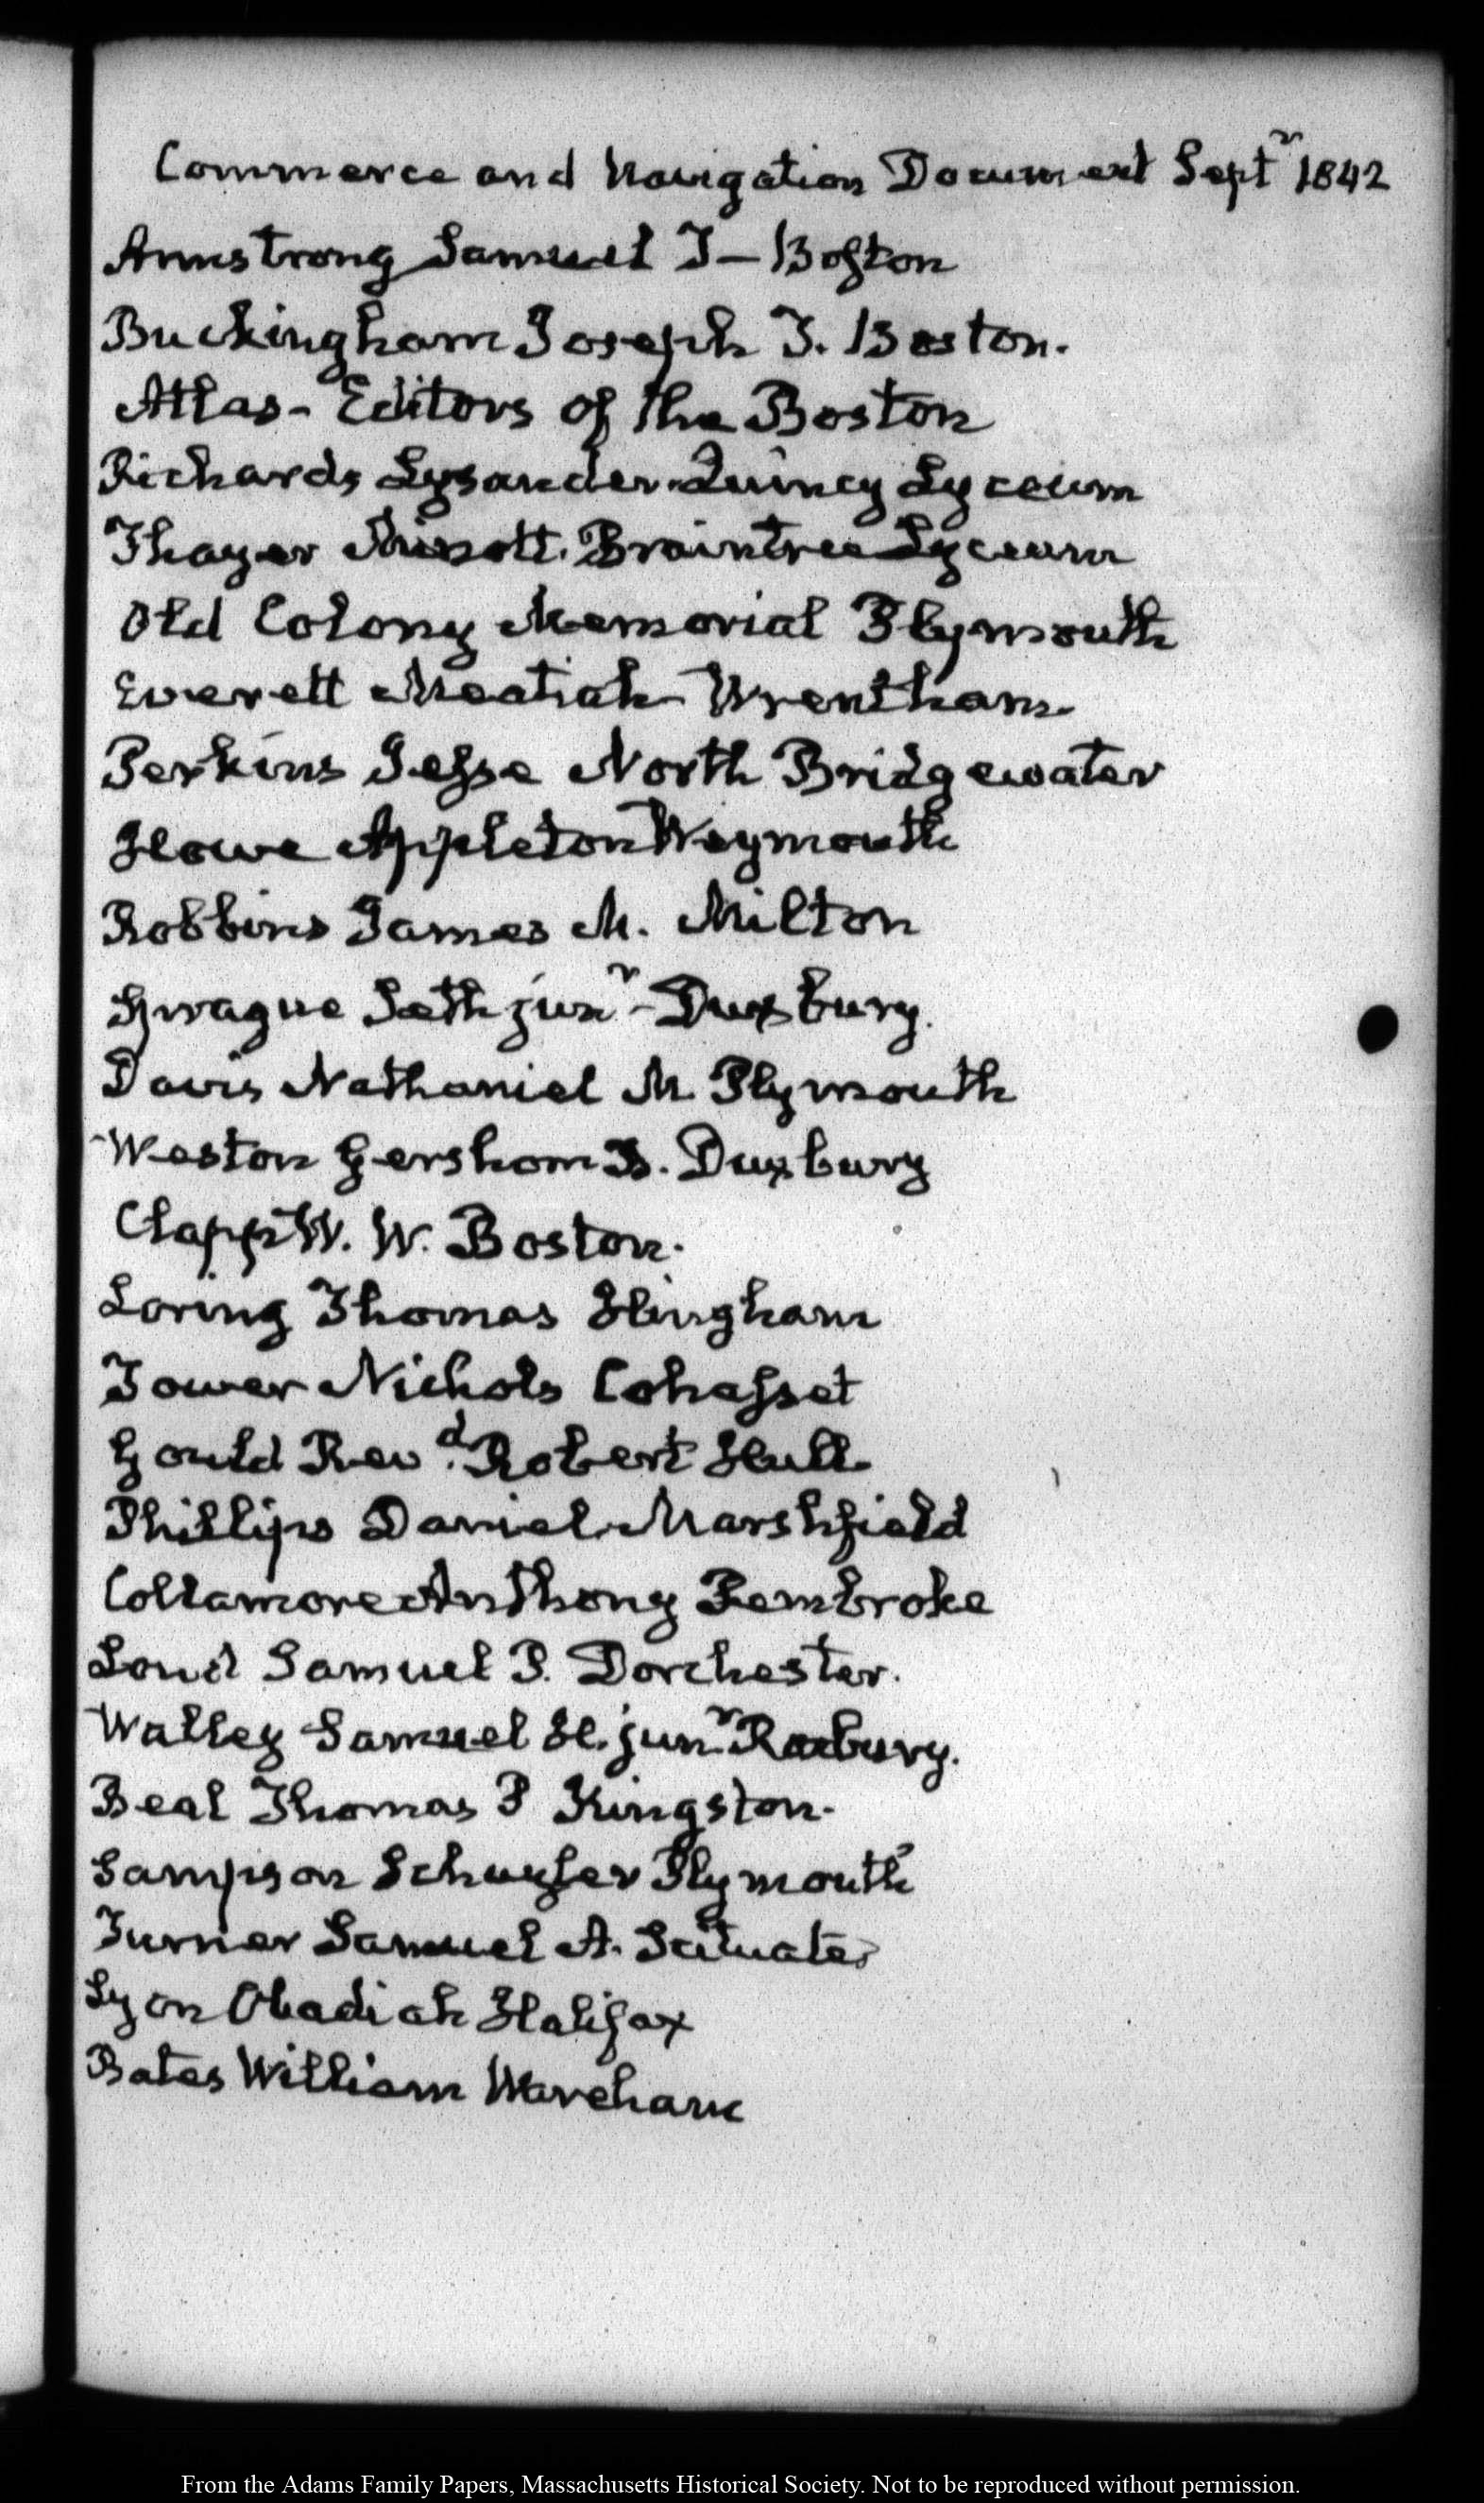 Commerce and Navigation Document Septr 1842
Armstrong Samuel T— Boston
Buckingham Joseph T. Boston.
Atlas- Editors of the Boston
Richards Lysander. Quincy Lyceum
Thayer Minott. Braintree Lyceum
Old Colony Memorial Plymouth
Everett Meatiah Wrentham.
Perkins Jesse North Bridgewater
Howe Appleton Weymouth
Robbins James M. Milton
Sprague Seth junr - Duxbury.
Davis Nathaniel M. Plymouth
Weston Gershom B. Duxbury
Clapp W. W. Boston.
Loring Thomas Hingham
Tower Nichols Cohasset
Gould Revd. Robert Hull
Phillips Daniel. Marshfield
Collamore Anthony Pembroke
Loud Samuel P. Dorchester.
Walley Samuel H. junr Roxbury.
Beal Thomas P Kingston.
Sampson Schuyler Plymouth
Turner Samuel A. Scituate
Lyon Obadiah Halifax
Bates William Wareham
From the Adams Family Papers, Massachusetts Historical Society. Not to be reproduced without permission.